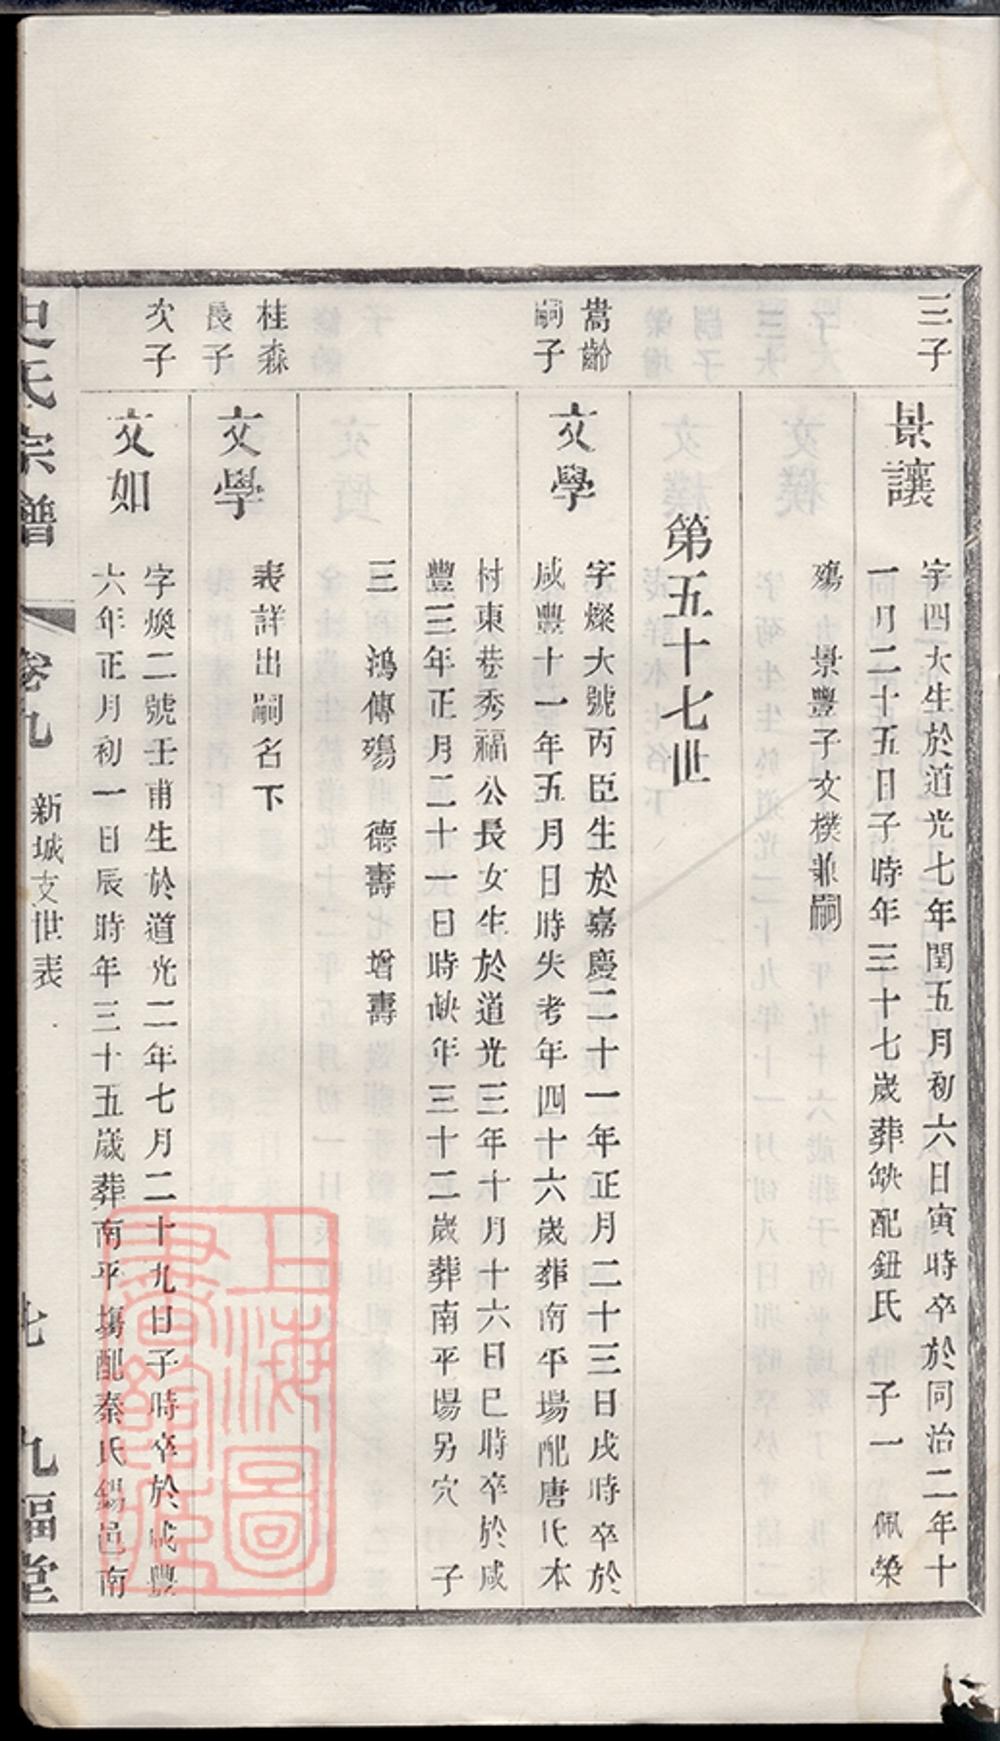 三子
景讓
字四大生於道光七年閏五月初六日寅時卒於同治二年十
一月二十五日子時年三十七歲葬缺配鈕氏　子一　佩榮
殤　景豐子文樸兼嗣
第五十七世
嵩齡
嗣子
文學
字燦大號丙臣生於嘉慶二十一年正月二十三日戌時卒於
咸豐十一年五月日時失考年四十六歲葬南平場配唐氏本
村東巷秀福公長女生於道光三年十月十六日巳時卒於咸
豐三年正月二十一日時缺年三十二歲葬南平場另穴　子
三　鴻傳殤　德壽　增壽
桂森
長子
文學
表詳出嗣名下
次子
文如
字煥二號壬甫生於道光二年七月二十九日子時卒於咸豐
六年正月初一日辰時年三十五歲葬南平塲配秦氏錫邑南
史氏宗譜
卷九
新城支世表
七
九福堂
上海圖
書館藏